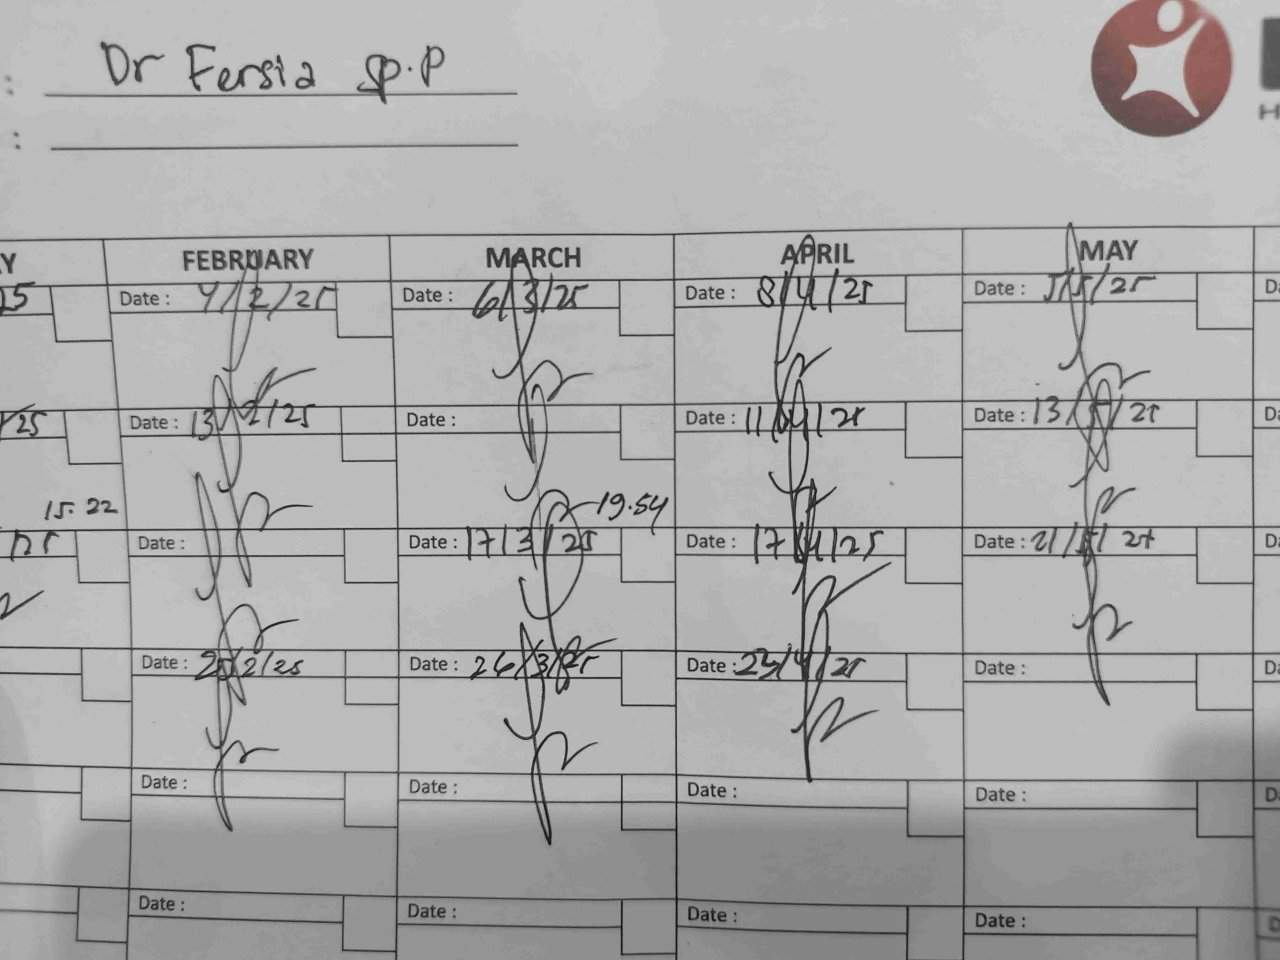 : Dr Fersia sp.p
:
H
Y FEBRUARY MARCH APRIL MAY
25 Date : 4/2/25 Date : 6/3/25 Date : 8/4/25 Date : 5/5/25 Da
/25 Date : 13/2/25 Date : Date : 11/4/25 Date : 13/5/25 Da
15.22 19.54
/25 Date : Date : 17/3/25 Date : 17/4/25 Date : 21/5/25 Da
Date : 25/2/25 Date : 26/3/25 Date : 23/4/25 Date : Da
Date : Date : Date : Date : Da
Date : Date : Date : Date : D